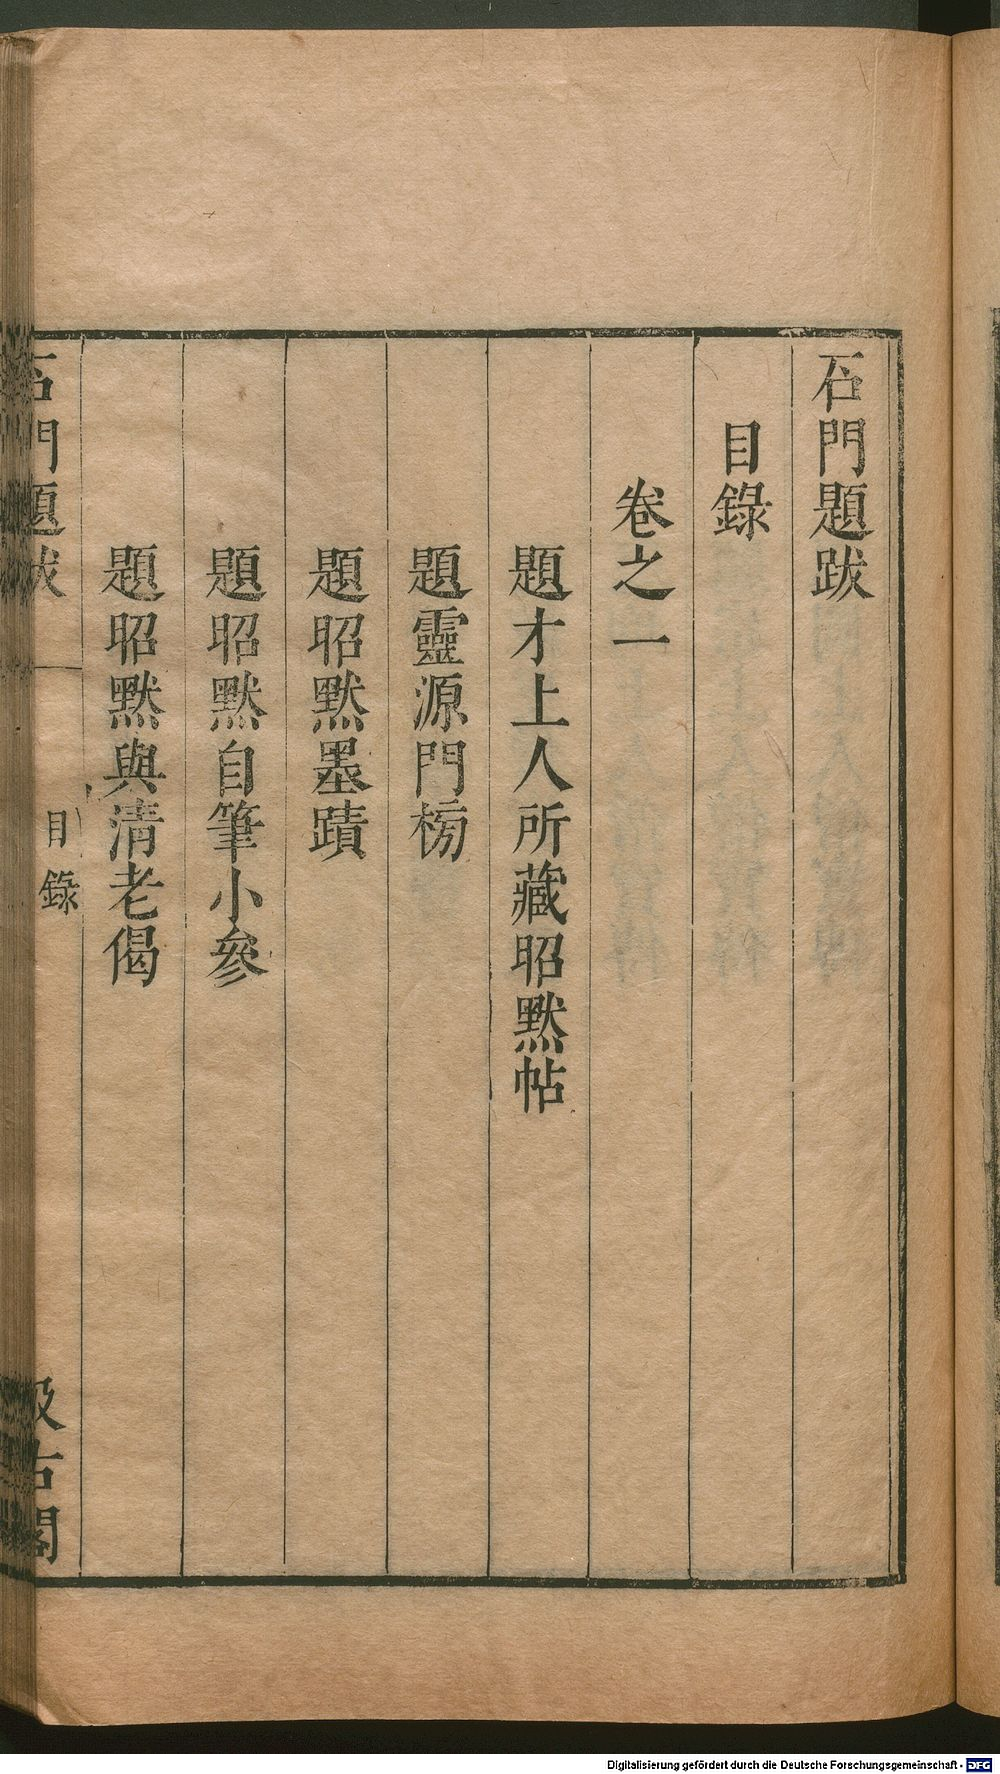 石門題跋
目錄
卷之一
題才上人所藏昭黙帖
題靈源門榜
題昭黙墨蹟
題昭黙自筆小參
題昭黙與清老偈
石門題跋
目錄
汲古閣
Digitalisierung gefördert durch die Deutsche Forschungsgemeinschaft - DFG